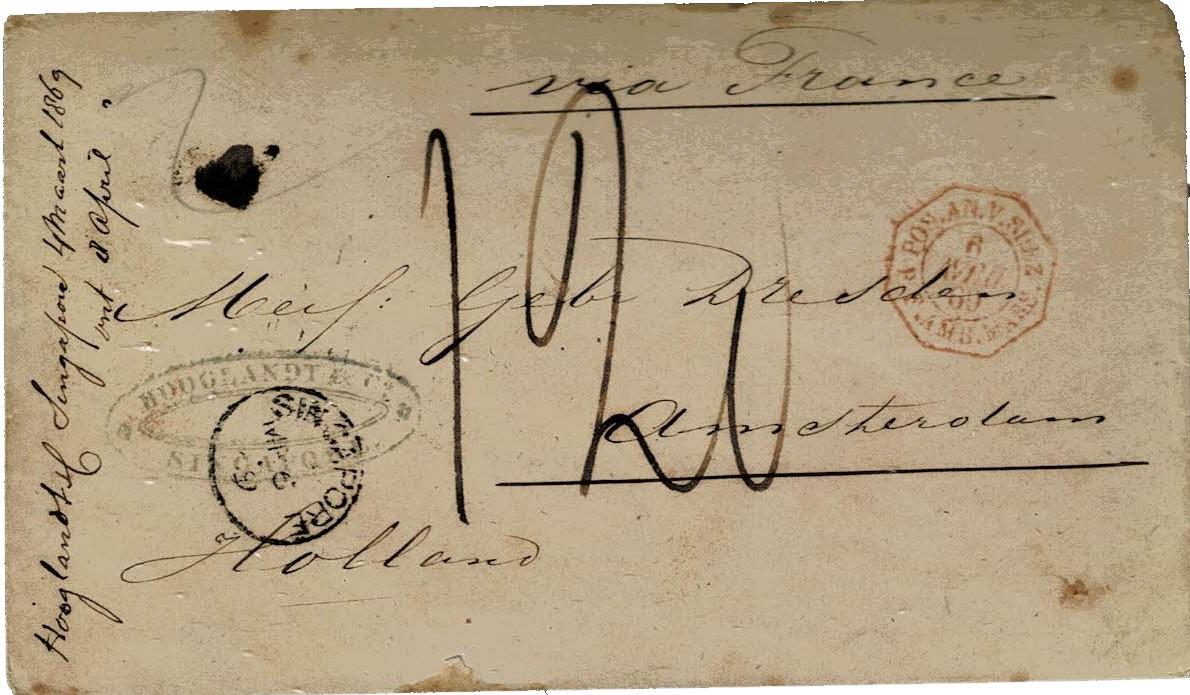 via France
Hooglandt & C Singapore 4 Maart 1869
ont 8 April "
POSS. AN. V. SUEZ
6
AVRIL
69
AMB. MARS.
Mess: Gebr Dresden
HOOGLANDT & Co
SINGAPORE
SINGAPORE
69
Amsterdam
Holland